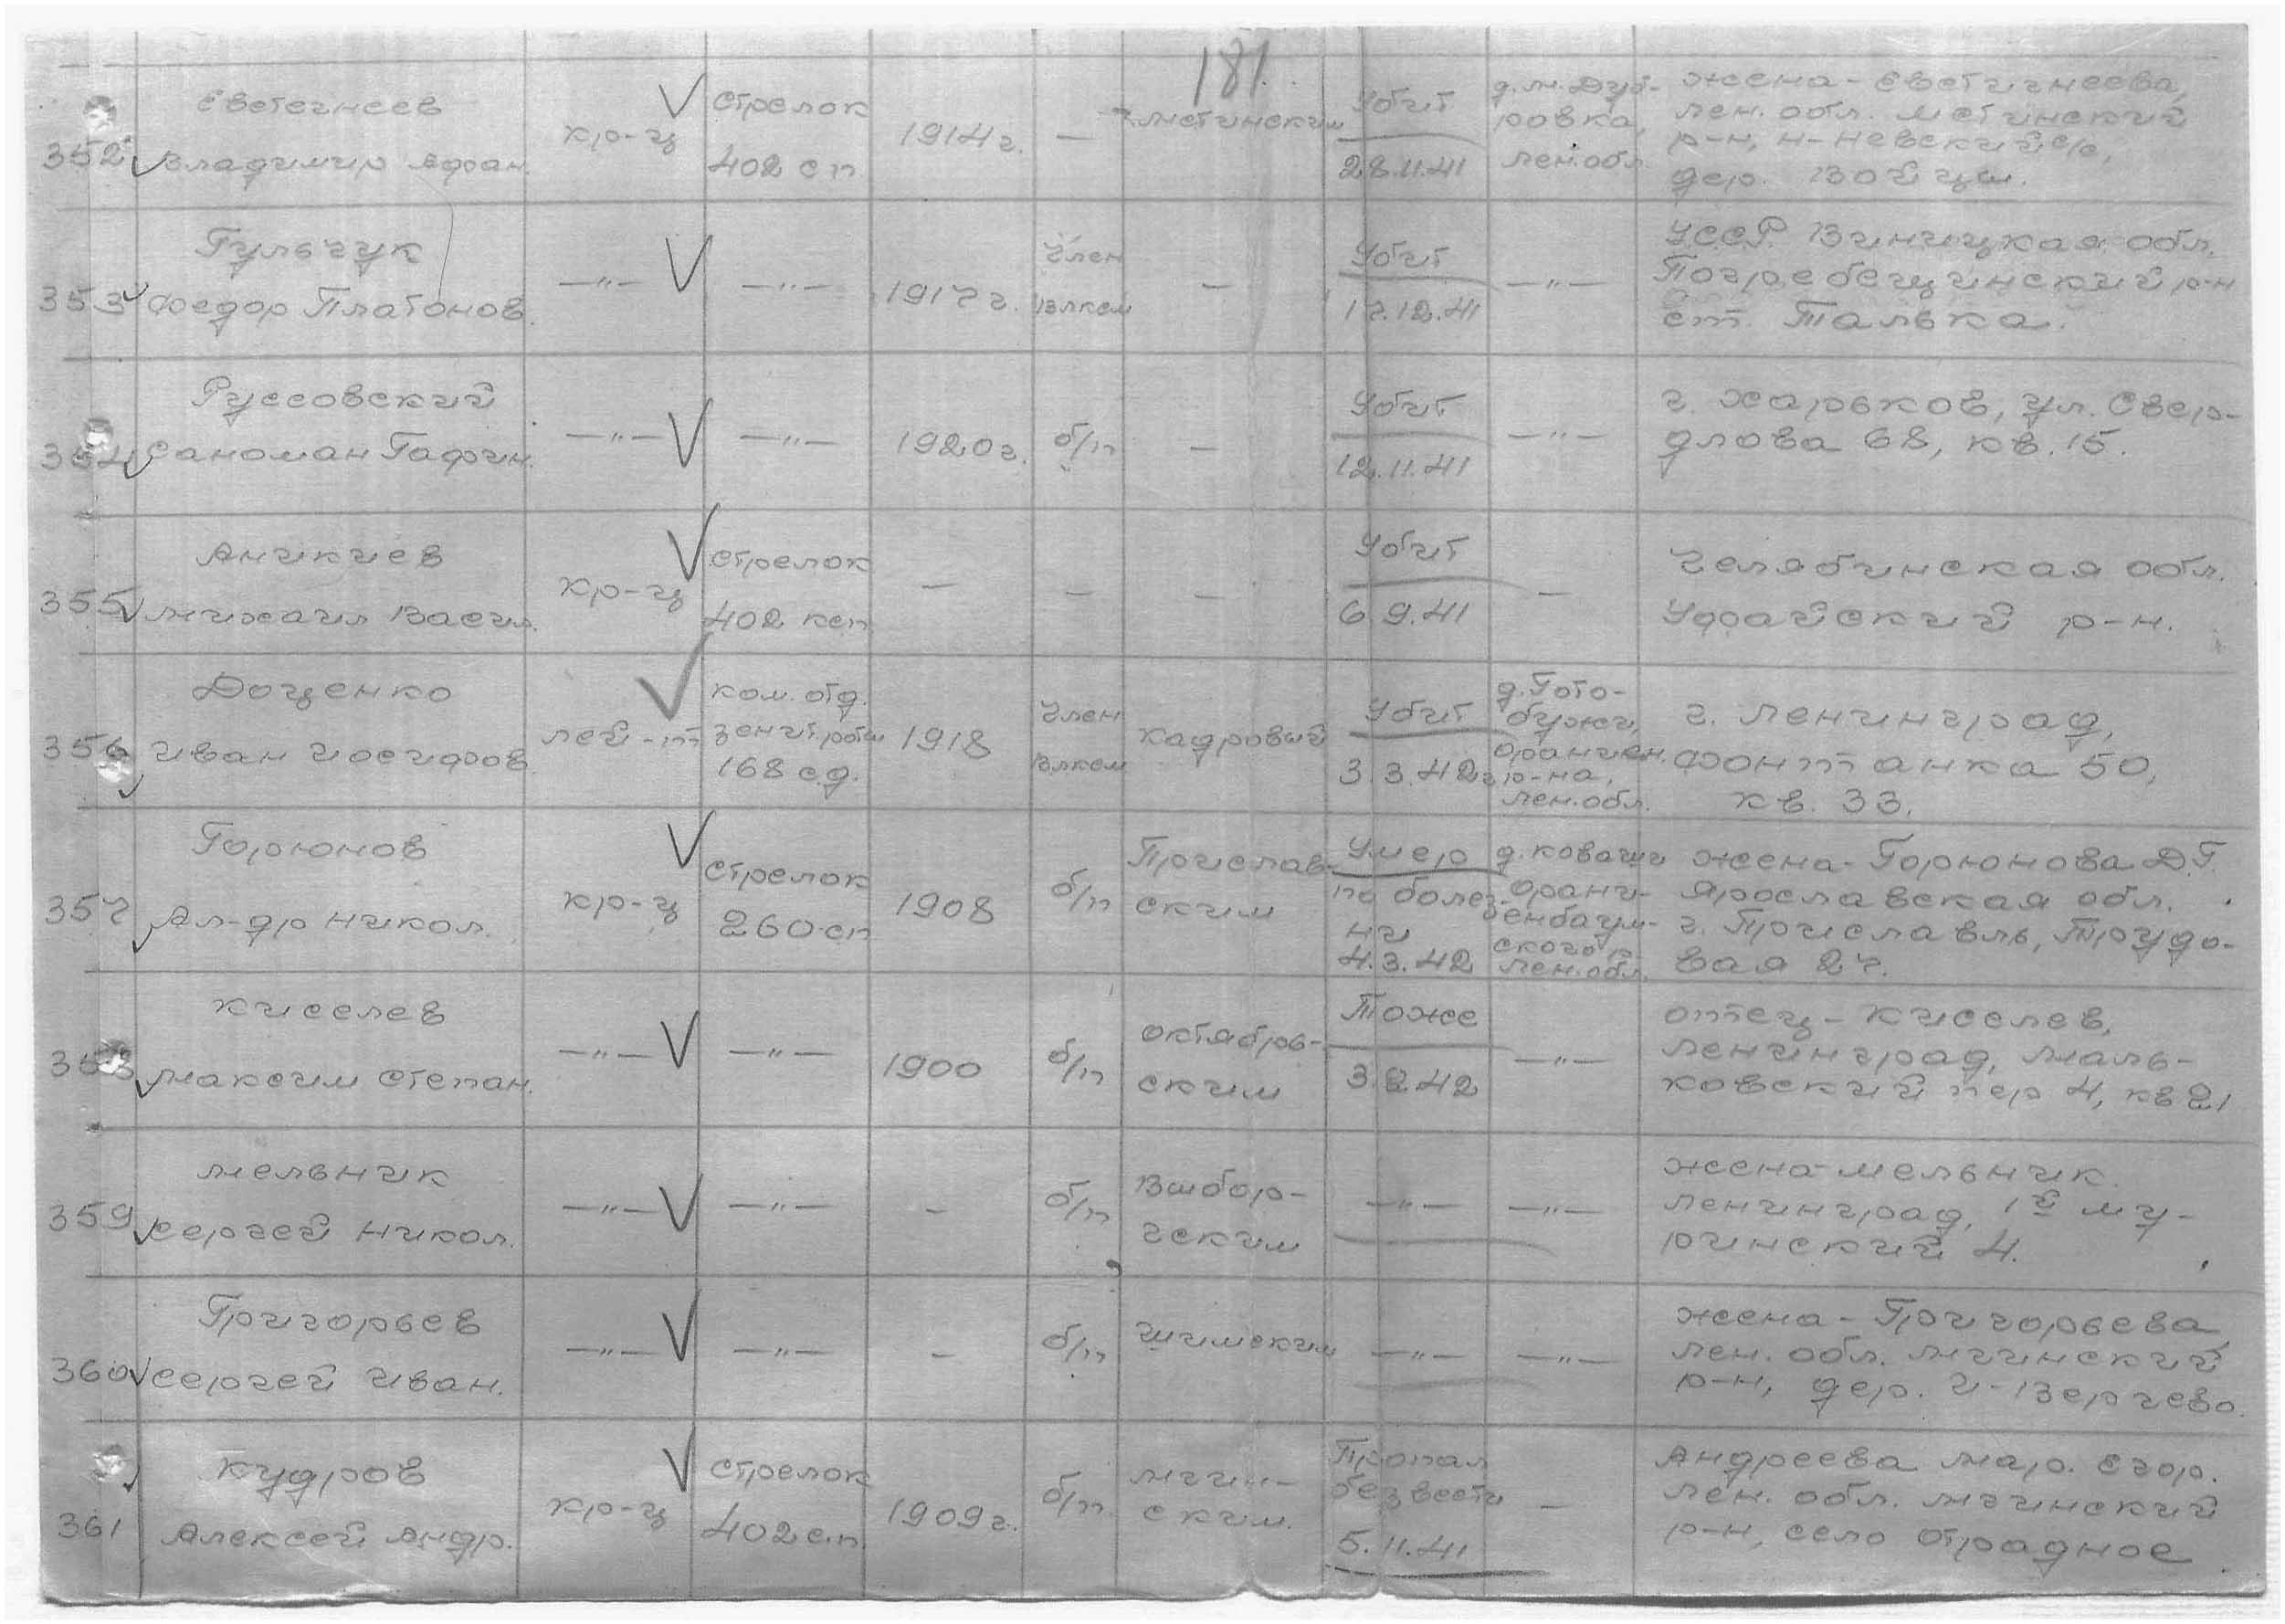 181.
352
Евстегнеев
Владимир Афан.
кр-ц
стрелок
402 сп
1914 г.
—
Мстинским
Убит
28.11.41
д. м. Дуб-
ровка,
Лен. обл.
жена - Евстигнеева,
Лен. обл. Мстинский
р-н, Н-Невский с/с,
дер. Войцы.
353
Гульчук
Федор Платонов.
—"—
—"—
1917 г.
Член
ВЛКСМ
—
Убит
17.12.41
—"—
УССР. Винницкая обл.
Погребещинский р-н
ст. Талька.
354
Руссовский
Саломан Гафрин.
—"—
—"—
1920 г.
б/п
—
Убит
12.11.41
—"—
г. Харьков, ул. Свер-
длова 68, кв. 15.
355
Аникиев
Михаил Васил.
кр-ц
стрелок
402 ксп
—
—
—
Убит
6.9.41
—
Челябинская обл.
Уфайский р-н.
356
Доценко
Иван Иосифов.
лей-т
ком. отд.
168 с.д.
1918
Член
ВЛКСМ
кадровый
Убит
3.3.42 г
д. Гото-
бужи,
Ораниен.
р-на,
Лен. обл.
г. Ленинград,
Фонтанка 50,
кв. 33.
357
Горюнов
Ал-др Никол.
кр-ц
стрелок
260 сп
1908
б/п
Прислав-
ским
Умер
по болез-
ни
4.3.42
д. Коваши
Орани-
енбаум-
ского р.
Лен. обл.
жена - Горюнова Д.Г.
Ярославская обл.
г. Приславль, Трудо-
вая 27.
358
Киселев
Максим Степан.
—"—
—"—
1900
б/п
Октябрь-
ским
Тоже
3.2.42
—"—
отец - Киселев,
Ленинград, Маль-
ковский пер 4, кв 21
359
Мельник
Сергей Никол.
—"—
—"—
—
б/п
Выбор-
гским
—"—
—"—
жена - Мельник.
Ленинград, 1й Му-
ринский 4.
360
Григорьев
Сергей Иван.
—"—
—"—
—
б/п
Шимским
—"—
—"—
жена - Григорьева,
Лен. обл. Мгинский
р-н, дер.
361
Кудров
Алексей Андр.
кр-ц
стрелок
402 с.п.
1909 г.
б/п.
Мгин-
ским.
Пропал
без вести
5.11.41
—
Андреева Мар. Егор.
Лен. обл. Мгинский
р-н, село Отрадное